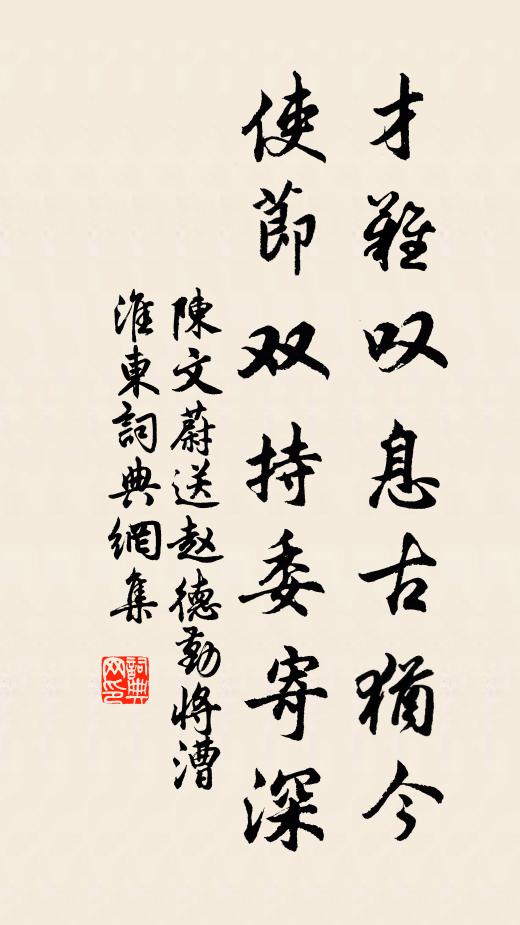 才難叹息古猶今
使節双持委寄深
陳文蔚送赵德勤將漕
淮東詞典網集
詞典网印